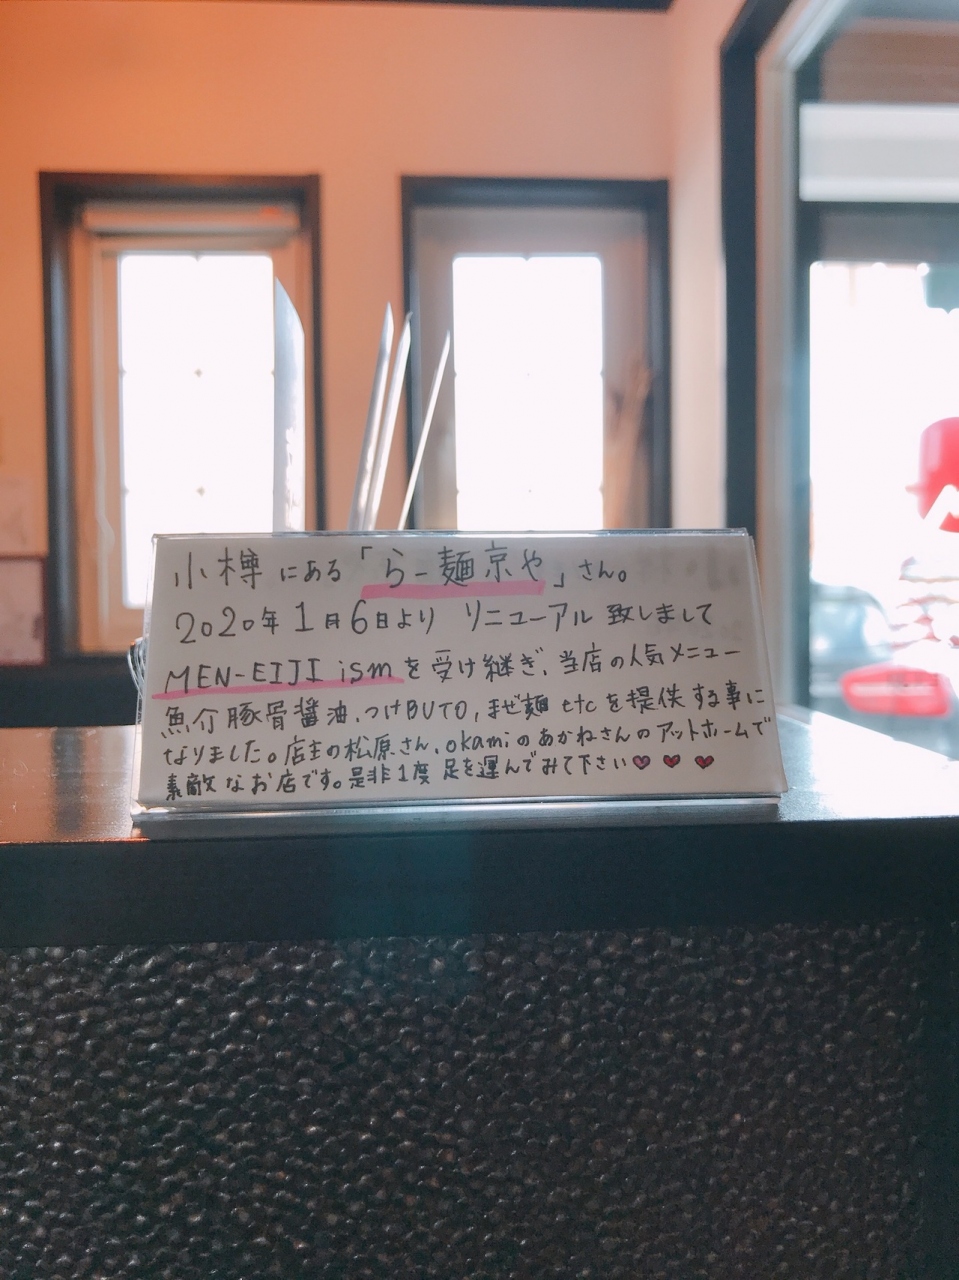 小樽にある「らー麺京や」さん。
2020年1月6日より リニューアル致しまして
MEN-EIJI ismを受け継ぎ、当店の人気メニュー
魚介豚骨醤油、つけBUTO、まぜ麺 etcを提供する事に
なりました。店主の松原さん、okamiのあかねさんのアットホームで
素敵なお店です。是非1度 足を運んでみて下さい♥♥♥